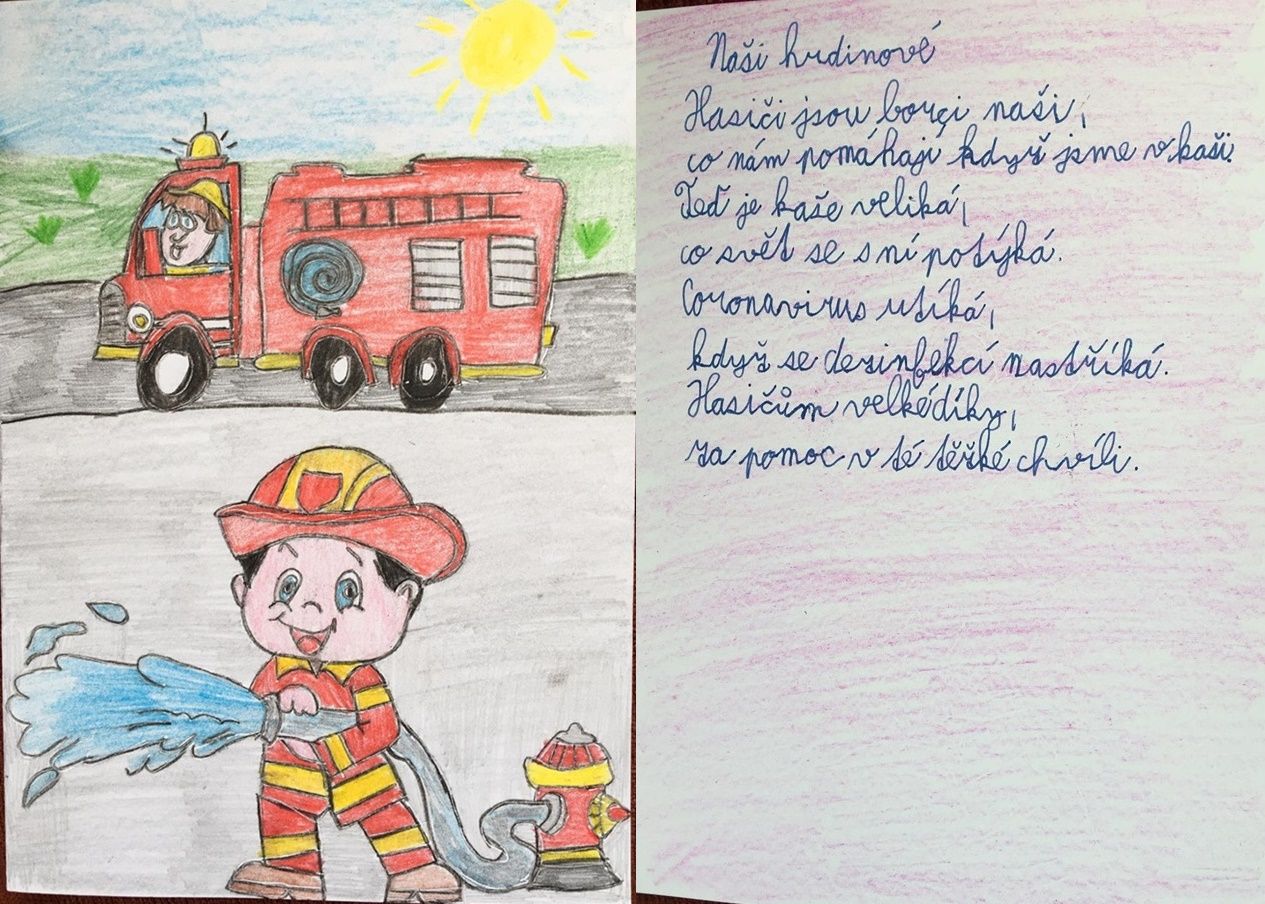 Naši hrdinové
Hasiči jsou borci naši,
co nám pomáhají když jsme v kaši.
Teď je kaše veliká,
co svět se s ní potýká.
Coronavirus utíká,
když se dezinfekcí nastříká.
Hasičům velké díky,
za pomoc v té těžké chvíli.